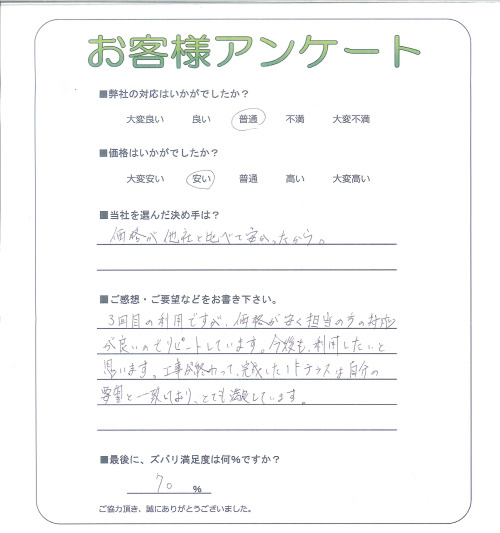 お客様アンケート
■弊社の対応はいかがでしたか？
大変良い 良い 普通 不満 大変不満
■価格はいかがでしたか？
大変安い 安い 普通 高い 大変高い
■当社を選んだ決め手は？
価格が他社と比べて安かったから。
■ご感想・ご要望などをお書き下さい。
3回目の利用ですが、価格が安く担当の方の対応
が良いのでリピートしています。今後も、利用したいと
思います。工事が終わって、完成したテラスは自分の
要望と一致しており、とても満足しています。
■最後に、ズバリ満足度は何％ですか？
70 %
ご協力頂き、誠にありがとうございました。